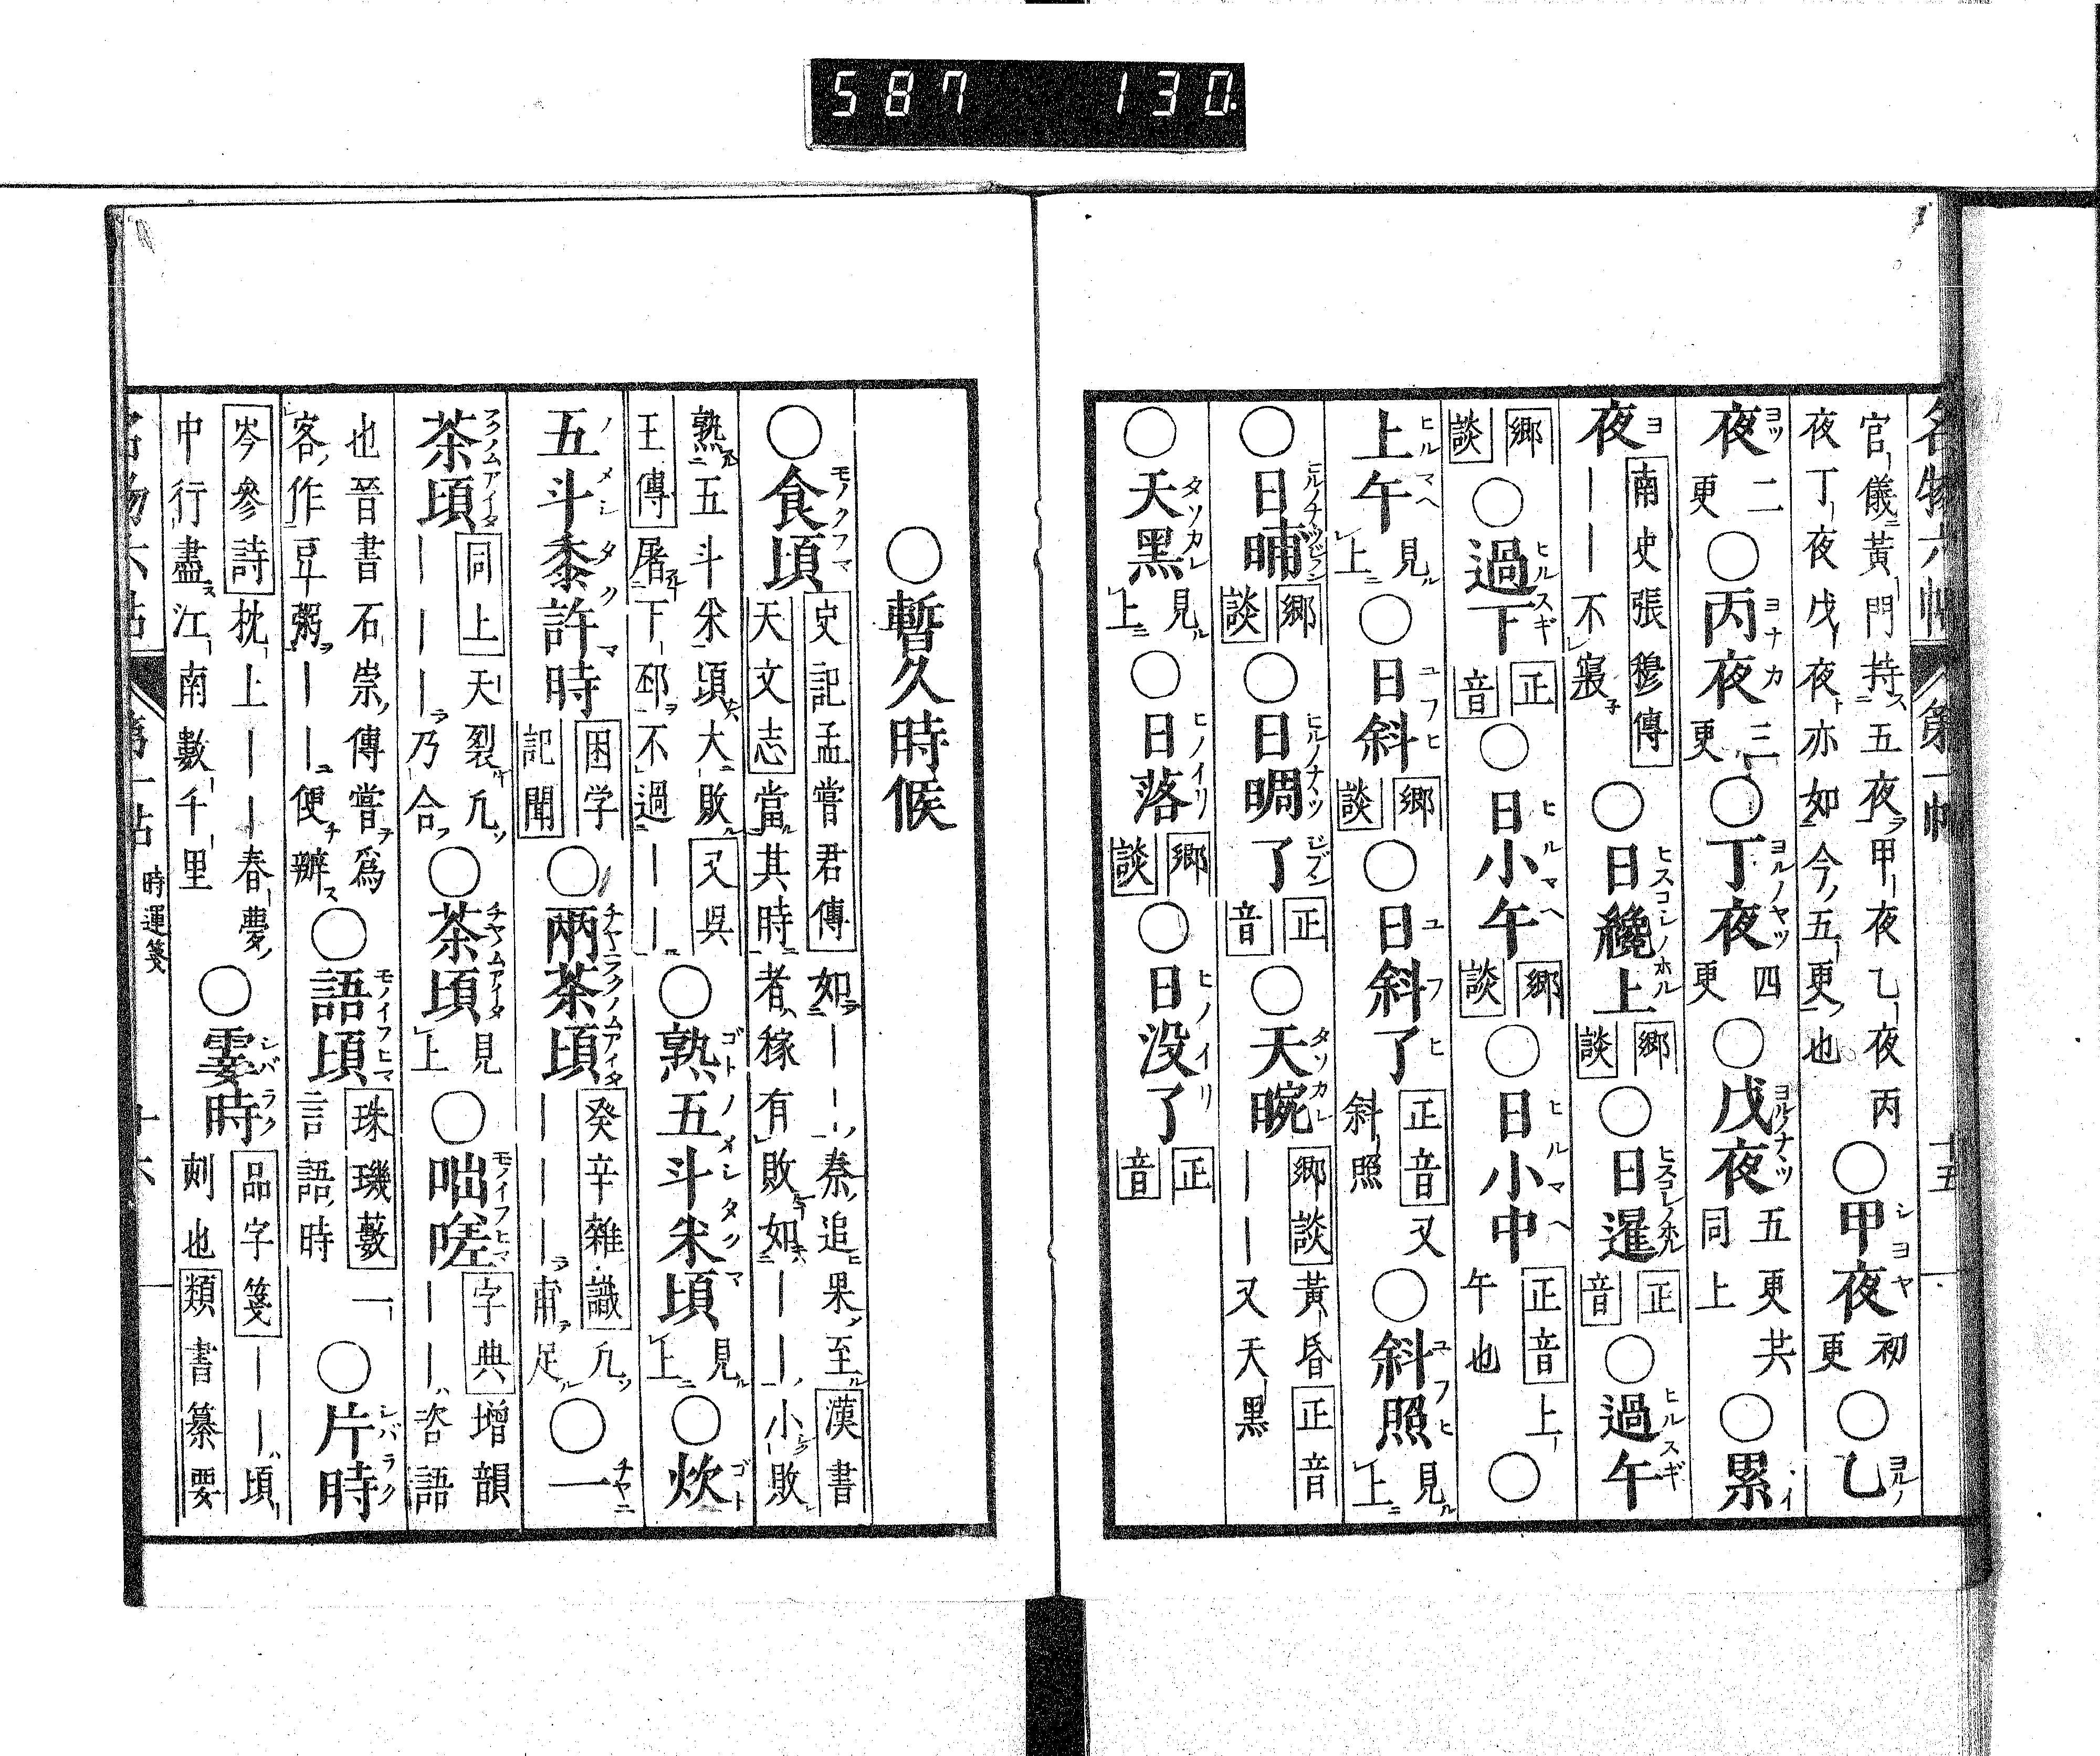 587 130.
官儀黃門持五夜甲夜乙夜丙
夜丁夜戊夜亦如今五更也
○甲夜初更○乙
夜二更○丙夜三更○丁夜四更○戊夜五更共同上○累
夜南史張穆傳｜｜不寢○日纔上鄉談○日暹正音○過午
鄉談○過下正音○日小午鄉談○日小中正音上午也○
上午見上○日斜鄉談○日斜了正音又斜照○斜照見上
○日晡鄉談○日晭了正音○天晼鄉談黃昏正音｜｜又天黑
○天黑見上○日落鄉談○日没了正音
○暫久時候
○食頃史記孟嘗君傳如｜｜秦追果至漢書
天文志當其時者稼有敗如｜｜小敗
熟五斗米頃大敗又吳
王傳屠下邳不過｜｜○熟五斗米頃見上○炊
五斗黍許時困学記聞○兩茶頃癸辛雜識凢｜｜｜肅足○一
茶頃同上天裂凢｜｜｜乃合○茶頃見上○咄嗟字典增韻｜｜咨語
也晉書石崇傳嘗爲
客作豆粥｜｜便辦○語頃珠璣藪一言語時○片時
岑參詩枕上｜｜春夢
中行盡江南數千里○霎時品字箋｜｜頃
刺也類書纂要
時運箋